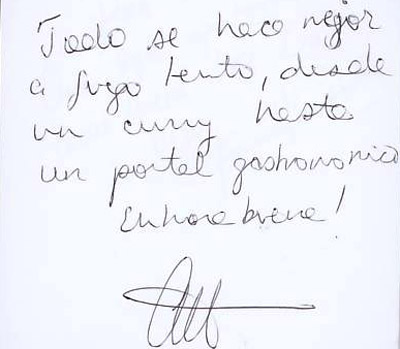 Todo se hace mejor
a fuego lento, desde
un curry hasta
un portal gastronomico
Enhorabuena!